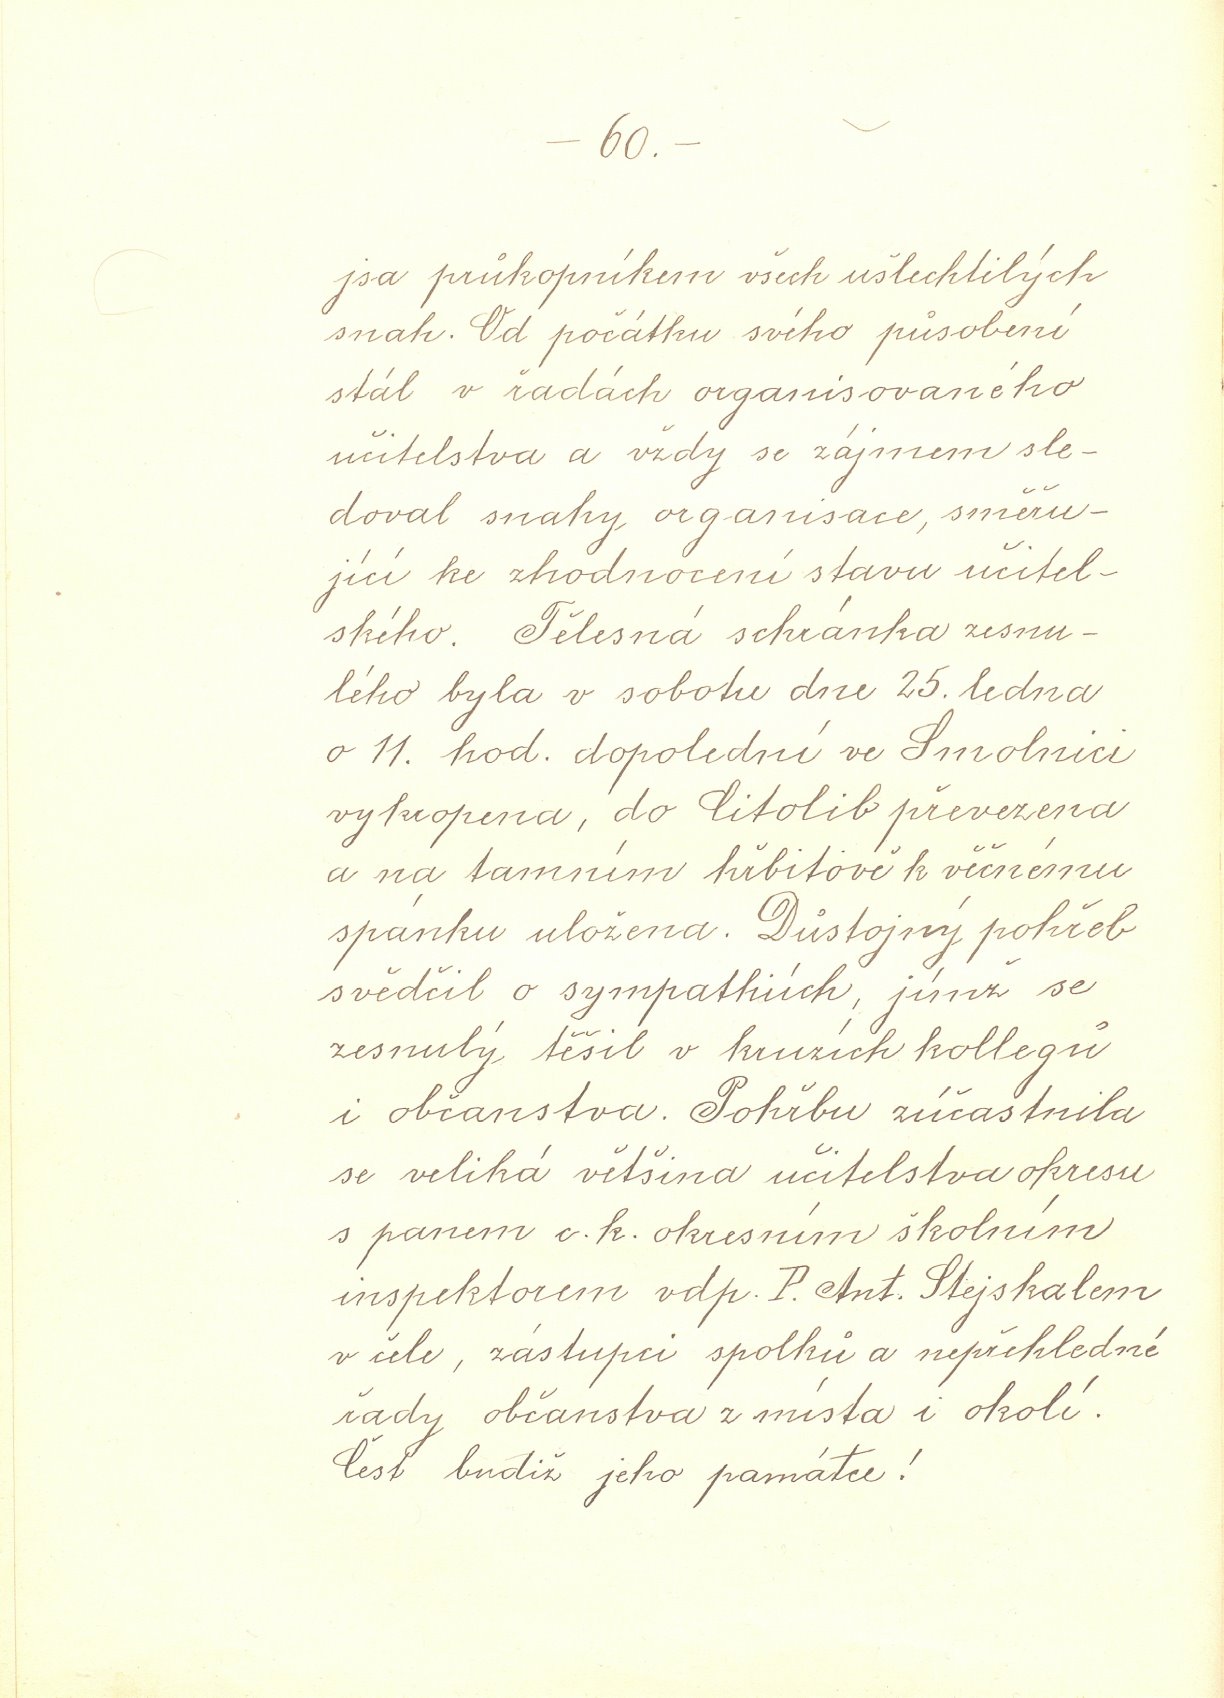 – 60. –
jsa průkopníkem všech ušlechtilých
snah. Od počátku svého působení
stál v řadách organisovaného
učitelstva a vždy se zájmem sle-
doval snahy organisace, směřu-
jící ke zhodnocení stavu učitel-
ského. Tělesná schránka zesnu-
lého byla v sobotu dne 25. ledna
o 11. hod. dopolední ve Smolnici
vykropena, do Citolib převezena
a na tamním hřbitově k věčnému
spánku uložena. Důstojný pohřeb
svědčil o sympathiích, jimž se
zesnulý těšil v kruzích kollegů
i občanstva. Pohřbu zúčastnila
se veliká většina učitelstva okresu
s panem c. k. okresním školním
inspektorem vdp. P. Ant. Stejskalem
v čele, zástupci spolků a nepřehledné
řady občanstva z místa i okolí.
Čest budiž jeho památce!